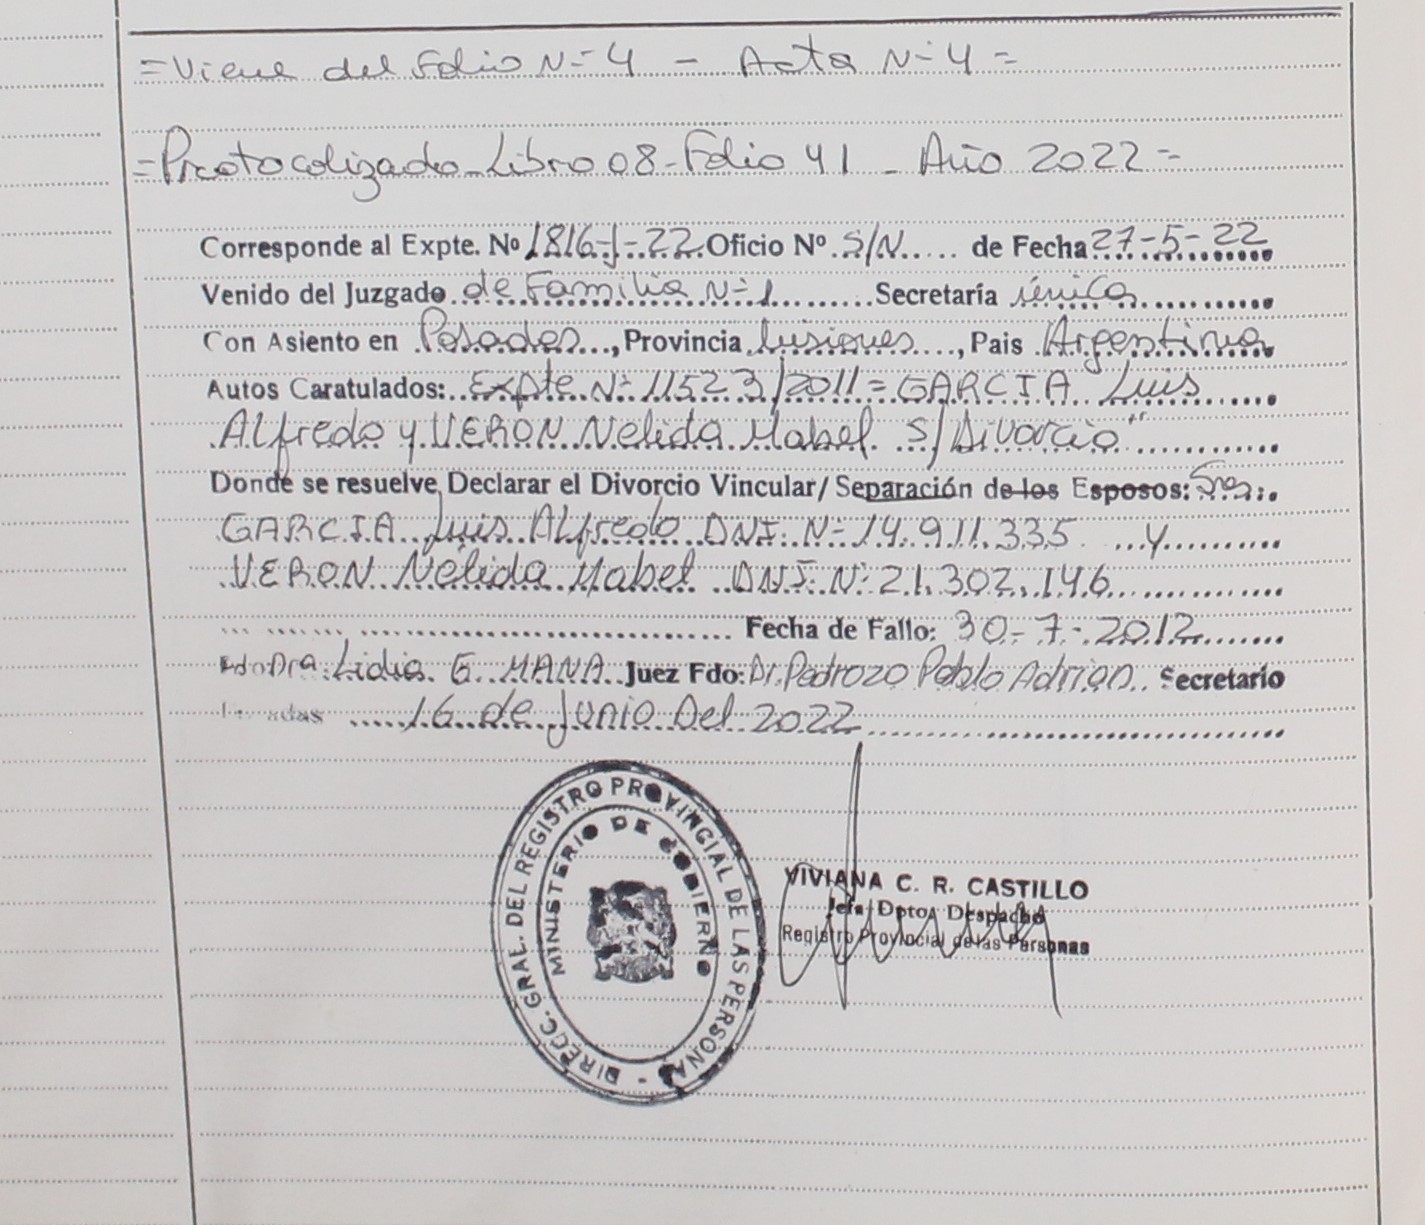 =Viene del Folio N=4 - Acta N=4=
=Protocolizado-Libro 08-Folio 41 - Año 2022=
Corresponde al Expte. Nº 1816-J-22. Oficio Nº S/N..... de Fecha 27-5-22
Venido del Juzgado de Familia N=1 Secretaría única
Con Asiento en Posadas..., Provincia Misiones...., Pais Argentina
Autos Caratulados: Expte N= 11523/2011= GARCIA Luis
Alfredo y VERON Nelida Mabel S/Divorcio"
Donde se resuelve Declarar el Divorcio Vincular/ Separación de los Esposos: Sres:
GARCIA Luis Alfredo DNI N=14.911.335 y
VERON Nélida Mabel DNI N=21.302.146
Fecha de Fallo: 30-7-2012
Fdo Dra. Lidia G. MANA Juez Fdo: Dr. Pedrozo Pablo Adrian Secretario
16 de Junio Del 2022
DIRECC. GRAL. DEL REGISTRO PROVINCIAL DE LAS PERSONAS -
MINISTERIO DE GOBIERNO
VIVIANA C. R. CASTILLO
Jefa Dpto. Despacho
Registro Provincial de las Personas